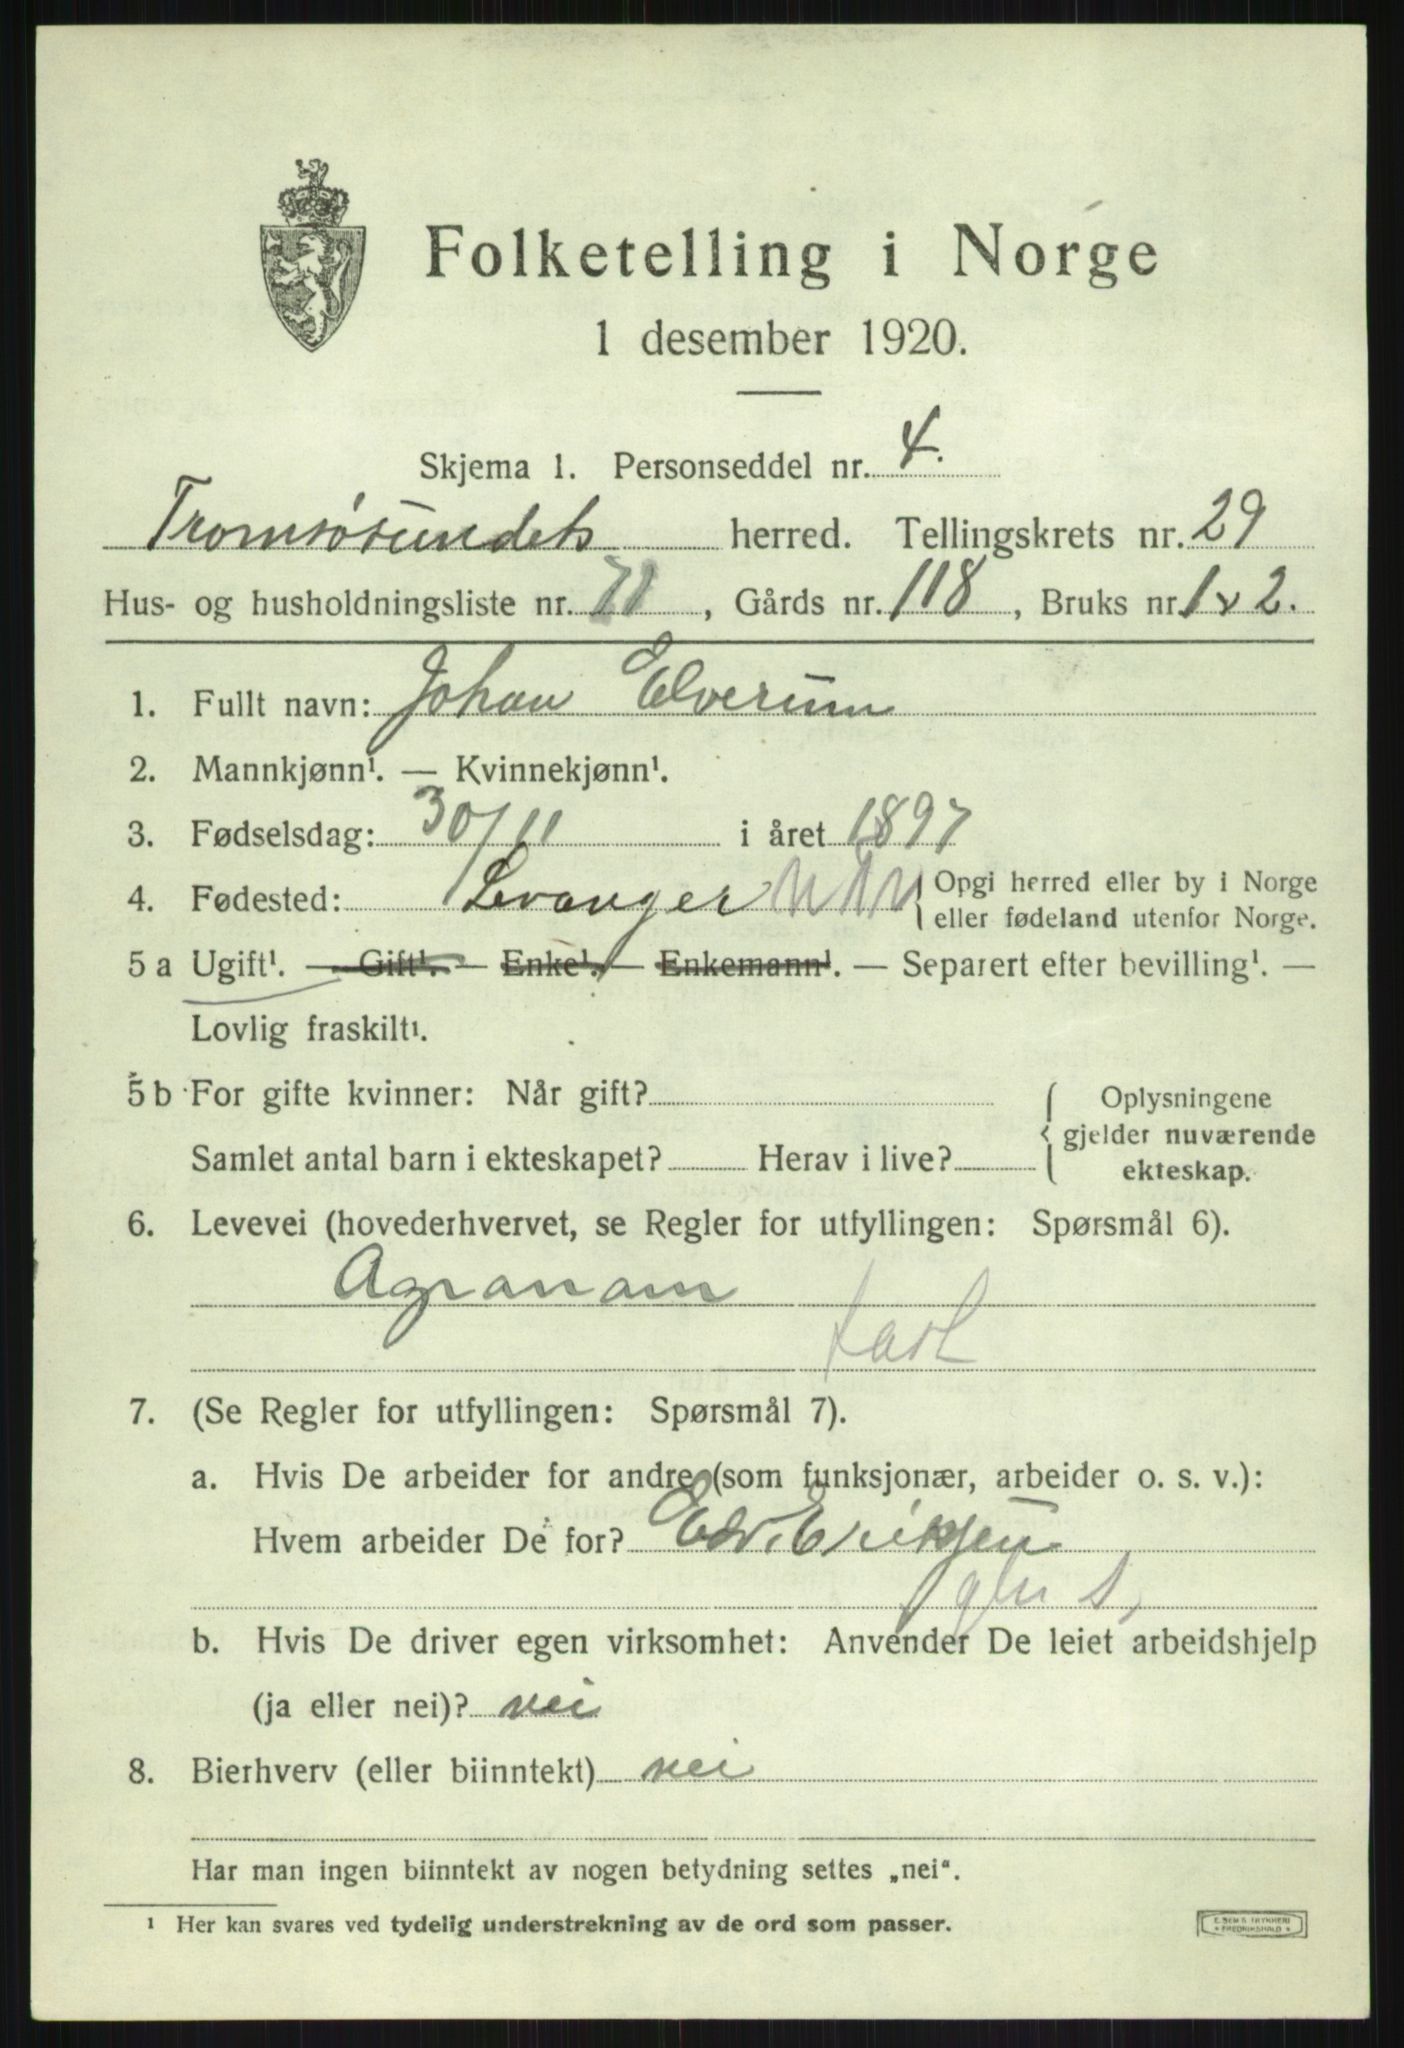 Folketelling i Norge
1 desember 1920.
Skjema 1. Personseddel nr. 4.
Tromsøsundets herred. Tellingskrets nr. 29
Hus- og husholdningsliste nr. 71, Gårds nr. 118, Bruks nr. 1 & 2.
1. Fullt navn: Johan Elverum
2. Mannkjønn¹. — Kvinnekjønn¹.
3. Fødselsdag: 30/11 i året 1897
4. Fødested: Levanger {Opgi herred eller by i Norge
eller fødeland utenfor Norge.
5 a Ugift¹. — Gift¹. — Enke¹. — Enkemann¹. — Separert efter bevilling¹. —
Lovlig fraskilt¹.
5 b For gifte kvinner: Når gift?
Samlet antal barn i ekteskapet? Herav i live?
{Oplysningene
gjelder nuværende
ekteskap.
6. Levevei (hovederhvervet, se Regler for utfyllingen: Spørsmål 6).
Agronom
7. (Se Regler for utfyllingen: Spørsmål 7).
a. Hvis De arbeider for andre (som funksjonær, arbeider o. s. v.):
Hvem arbeider De for? Edv. Eriksen
b. Hvis De driver egen virksomhet: Anvender De leiet arbeidshjelp
(ja eller nei)? nei
8. Bierhverv (eller biinntekt) nei
Har man ingen biinntekt av nogen betydning settes „nei“.
¹ Her kan svares ved tydelig understrekning av de ord som passer.